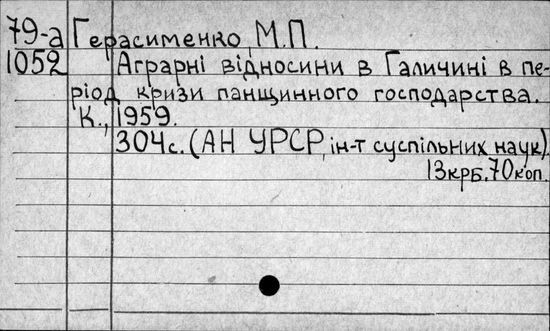 79-а Герасименко М.П.
1052 Аграрні відносини в Галичині в пе-
ріод кризи панщинного господарства.
К., 1959.
304с. (АН УРСР, ін-т суспільних наук)
13крб.70коп.